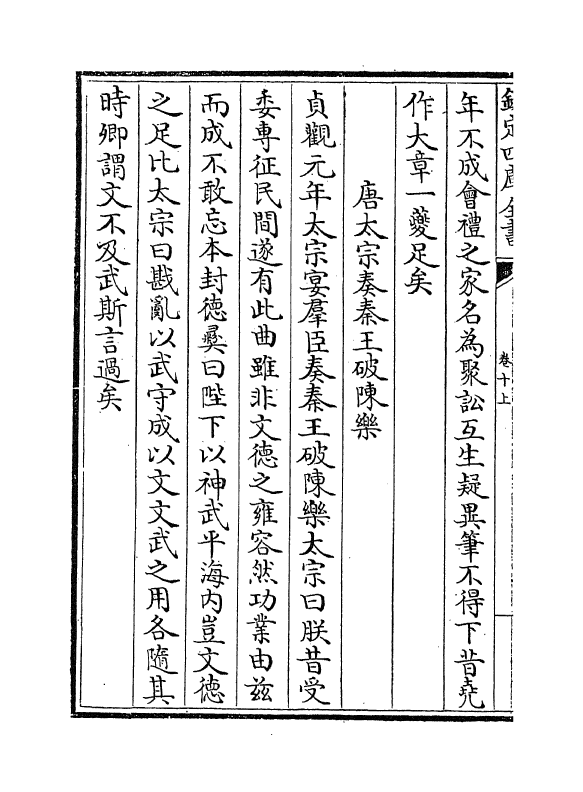 欽定四庫全書
卷十上
年不成會禮之家名為聚訟互生疑異筆不得下昔堯
作大章一夔足矣
唐太宗奏秦王破陳樂
貞觀元年太宗宴羣臣奏秦王破陳樂太宗曰朕昔受
委專征民間遂有此曲雖非文德之雍容然功業由兹
而成不敢忘本封德彞曰陛下以神武平海内豈文德
之足比太宗曰戡亂以武守成以文文武之用各隨其
時卿謂文不及武斯言過矣